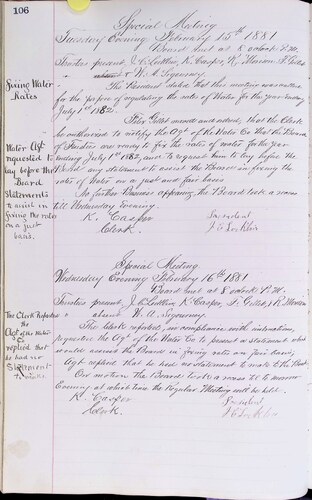 106
Special Meeting
Tuesday Evening February 15th 1881
Board met at 8 oclock P.M.
Trustees present, J. K. Casper, P. Gillet
& W. A. Sigourney
Fixing Water
Rates
The President stated that this meeting was called
for the purpose of regulating the rates of Water for the year ending
July 1st 1882.
Peter Gillet moved and voted, that the Clerk
Water Agt
requested to
lay before the
Board
Statements
to assist in
fixing the rates
on a just
basis.
be authorized to notify the Agt of the Water Co that the Board
of Trustees are ready to fix the rates of water for the year
ending July 1st 1882, and to request him to lay before the
Board any statement to assist the Board in fixing the
rates of Water on a just and fair basis
No further Business appearing the Board took a recess
till Wednesday Evening.
K. Casper
Clerk
President
Special Meeting
Wednesday Evening February 16th 1881
Board met at 8 oclock P.M.
Trustees present, J. K. Casper, P. Gillet,
absent W. A. Sigourney
The Clerk Reported
the
Agt of the Water
Co
replied that
he had no
Statement
to make
The Clerk reported, in compliance with instructions,
requested the Agt of the Water Co to present a statement which
would assist the Board in fixing rates on fair basis,
Agt replied that he had no statement to make to the Board.
On motion the Board took a recess till to morrow
Evening at which time the Regular Meeting will be held.
K. Casper
Clerk
President